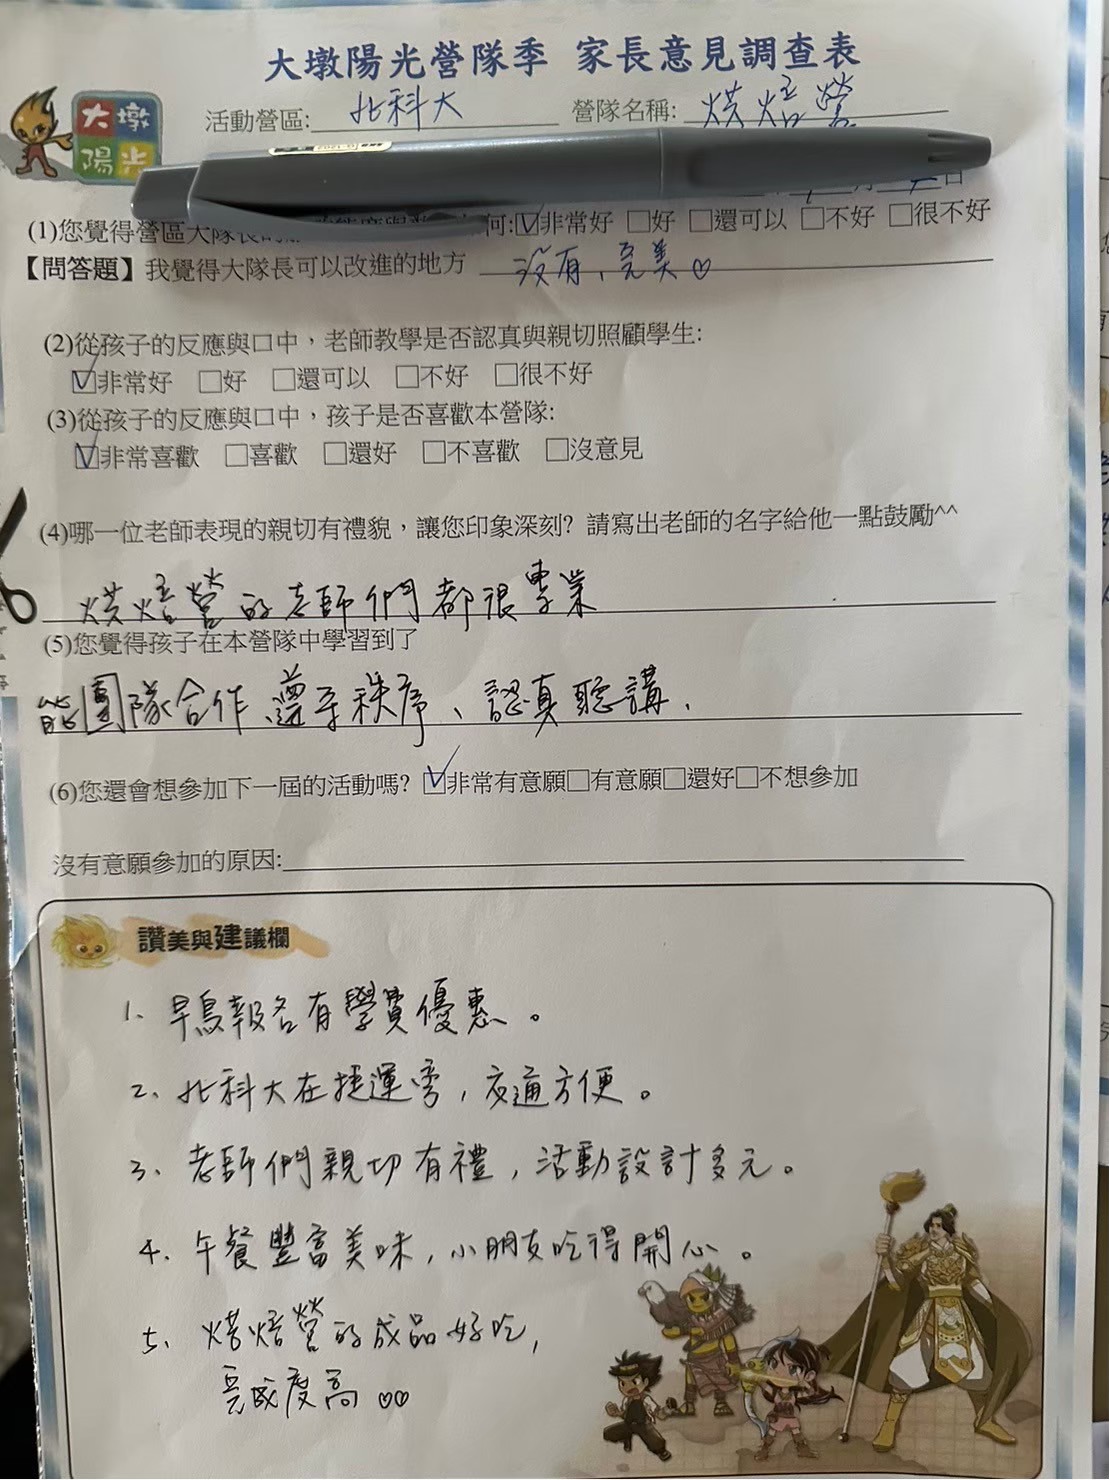 大墩陽光營隊季 家長意見調查表
大墩
陽光
活動營區: 北科大 營隊名稱: 烘焙營
(1)您覺得營區大隊長 何:☑非常好 □好 □還可以 □不好 □很不好
【問答題】我覺得大隊長可以改進的地方 沒有、完美♡
(2)從孩子的反應與口中，老師教學是否認真與親切照顧學生:
☑非常好 □好 □還可以 □不好 □很不好
(3)從孩子的反應與口中，孩子是否喜歡本營隊:
☑非常喜歡 □喜歡 □還好 □不喜歡 □沒意見
(4)哪一位老師表現的親切有禮貌，讓您印象深刻? 請寫出老師的名字給他一點鼓勵^^
烘焙營的老師們都很專業
(5)您覺得孩子在本營隊中學習到了
能團隊合作、遵守秩序、認真聽講、
(6)您還會想參加下一屆的活動嗎? ☑非常有意願□有意願□還好□不想參加
沒有意願參加的原因:
讚美與建議欄
1. 早鳥報名有學費優惠。
2、北科大在捷運旁，交通方便。
3、老師們親切有禮，活動設計多元。
4、午餐豐富美味，小朋友吃得開心。
5、烘焙營的成品好吃，
完成度高♡♡